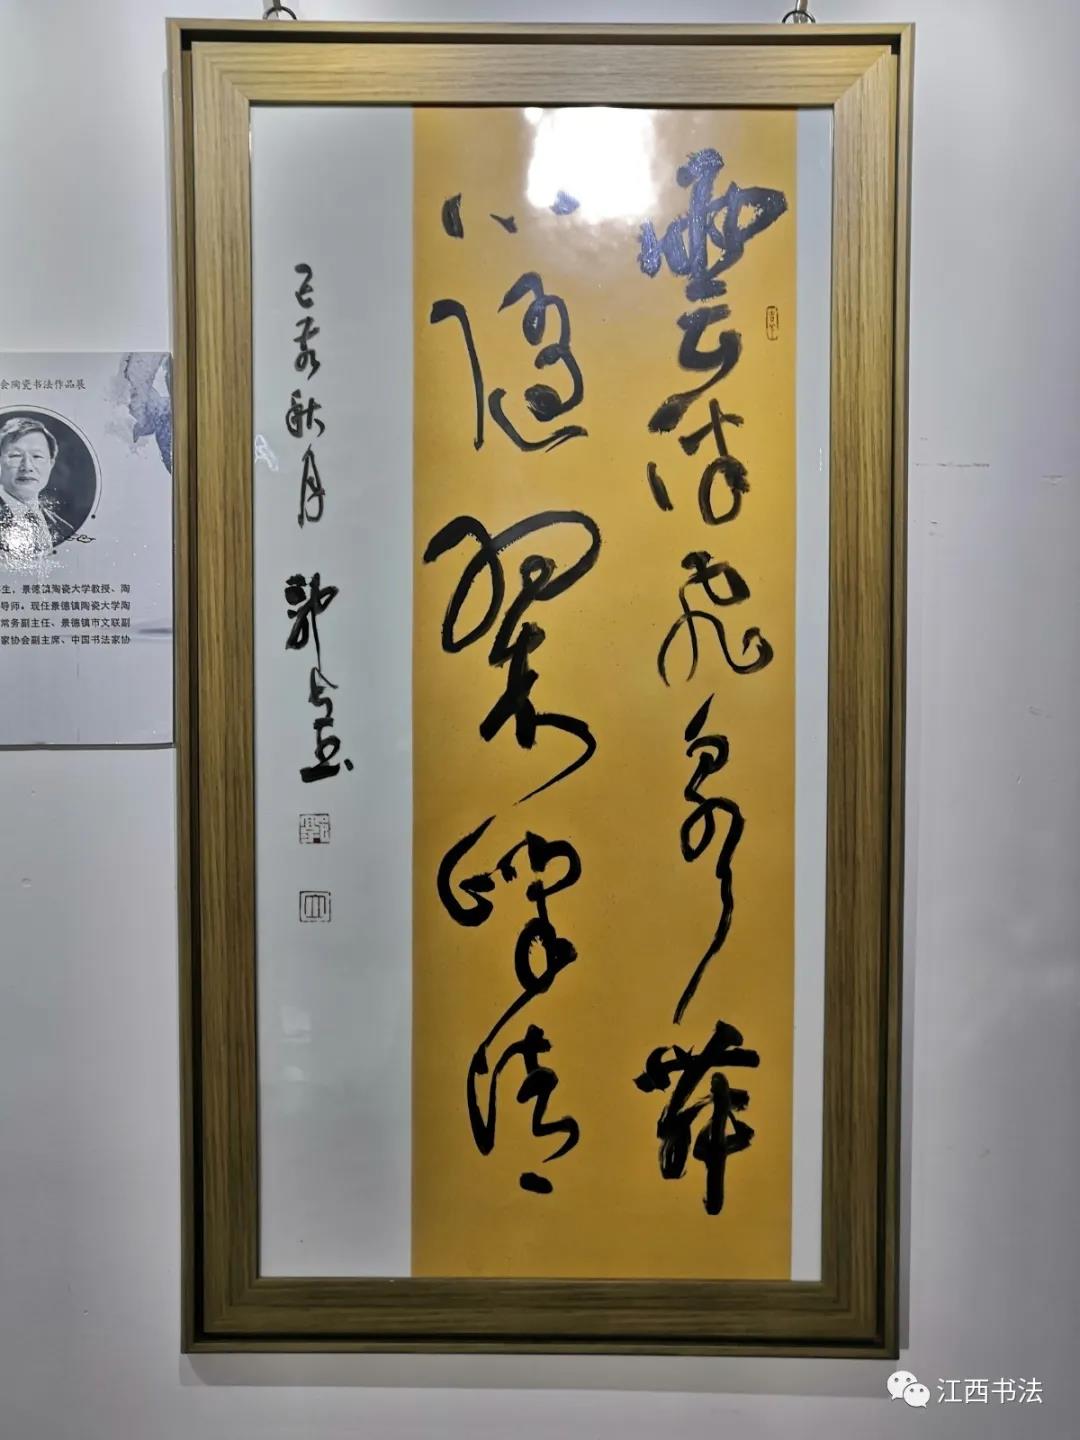 雲伴飛泉舞
心隱翠峰清
己亥秋月
会陶瓷书法作品展
生，景德镇陶瓷大学教授、陶
导师。现任景德镇陶瓷大学陶
常务副主任、景德镇市文联副
家协会副主席、中国书法家协
江西书法